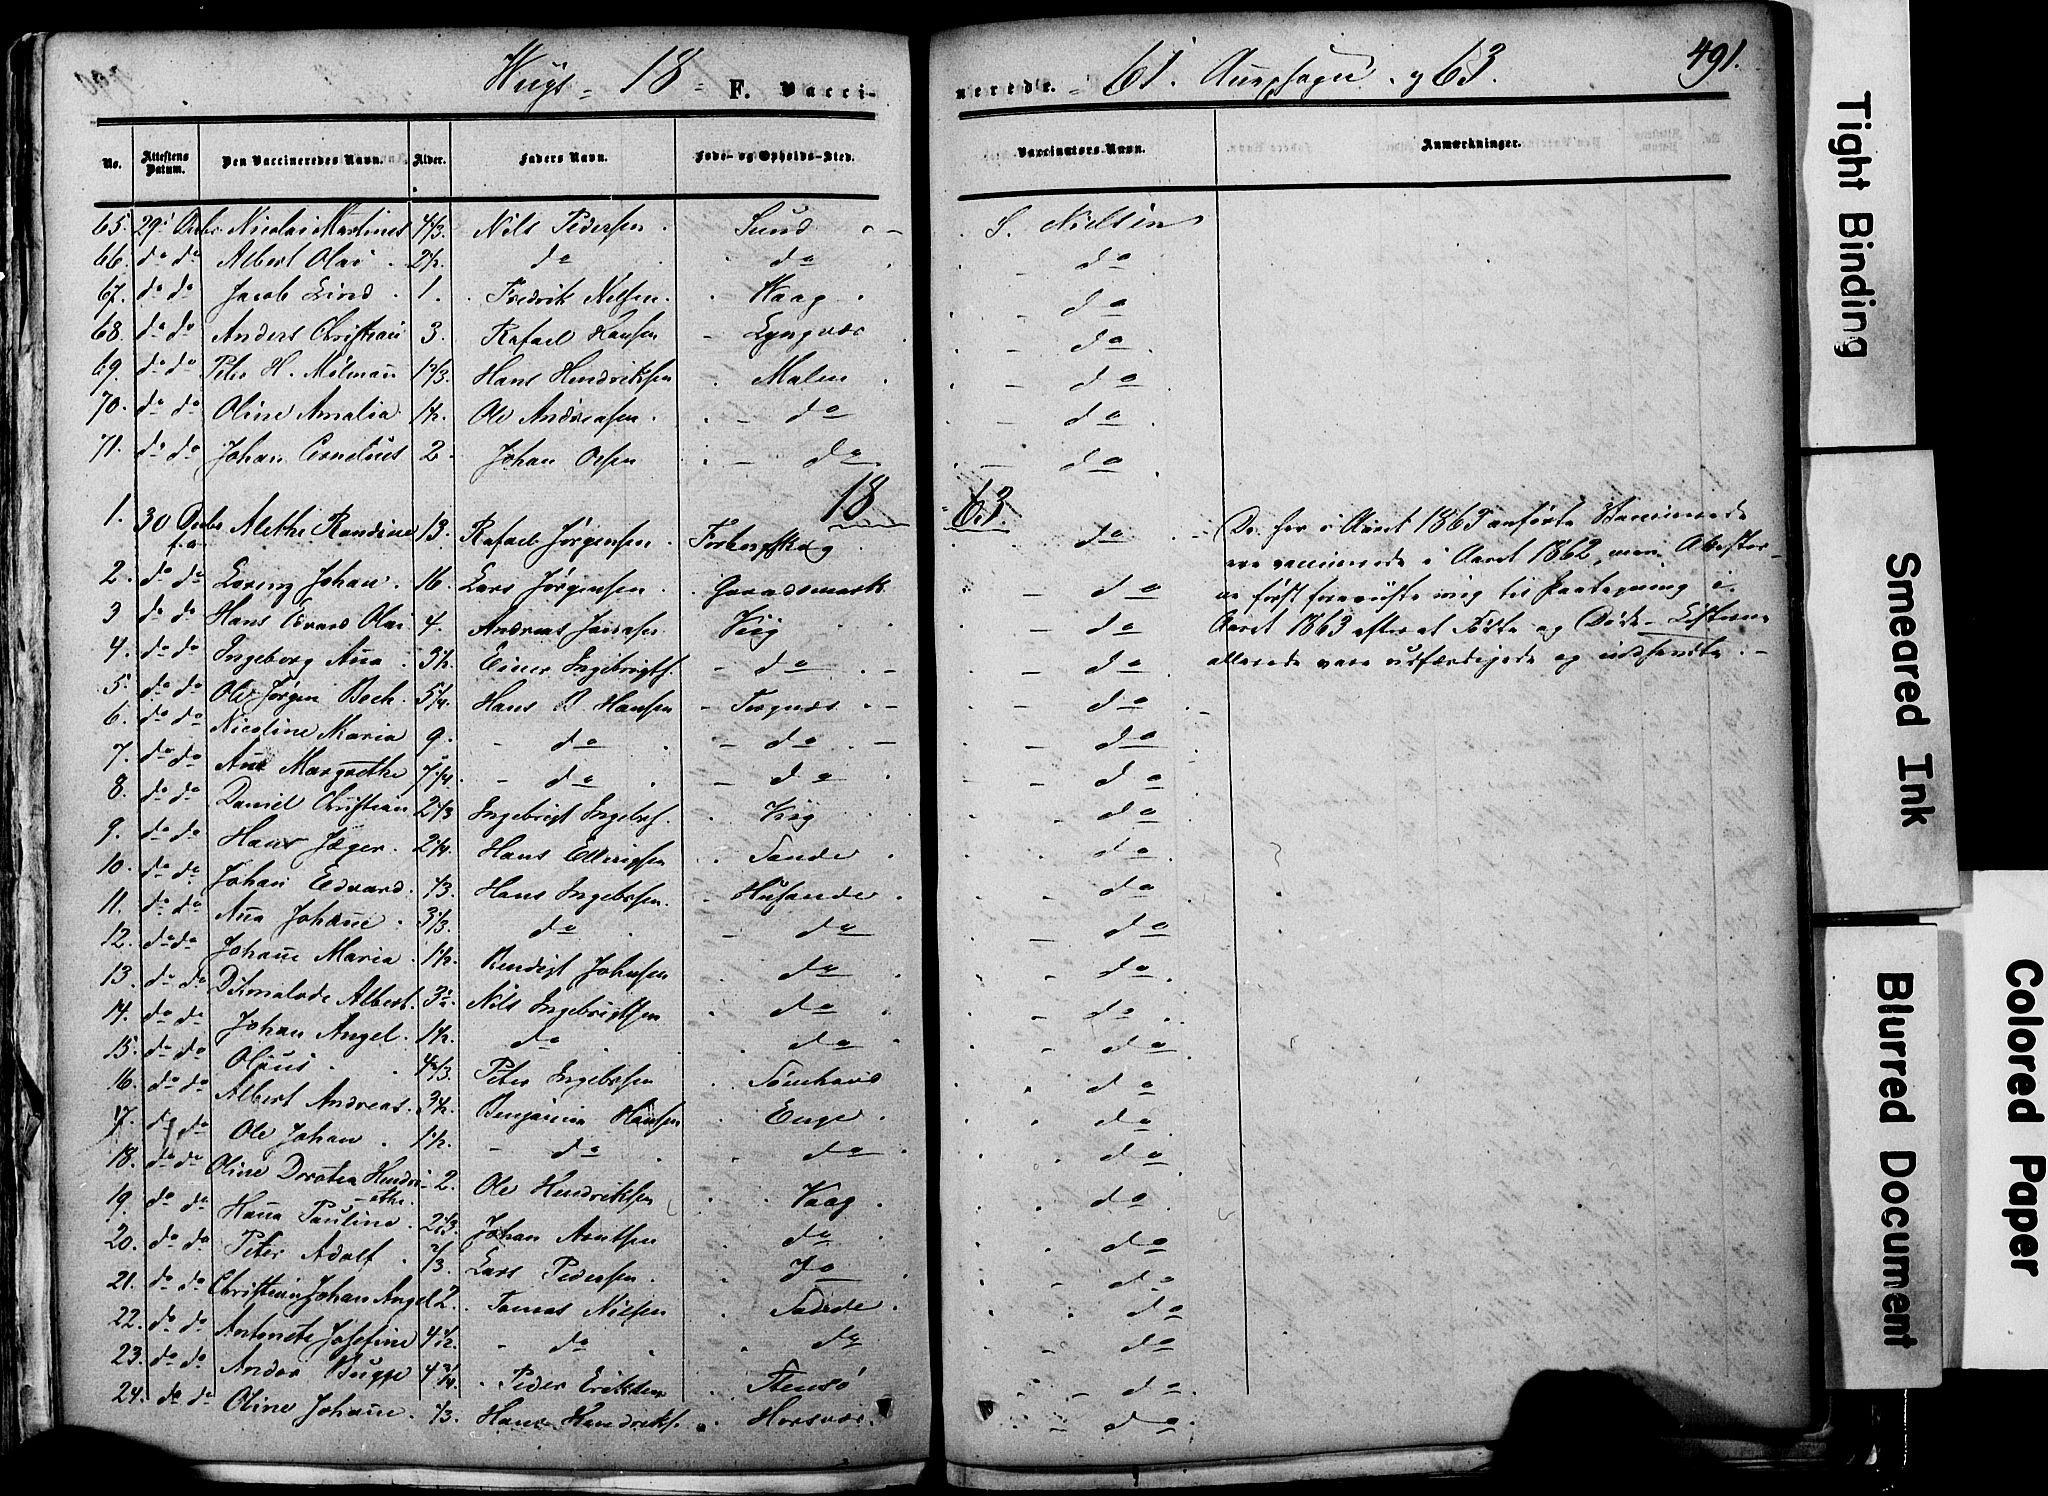 491.
18 F. Vacci- nerede. 61. og 63.
No. Attestens Datum. Den Vaccineredes Navn. Alder. Faders Navn. Føde- og Opholds-Sted. Vaccinators Navn. Anmærkninger.
65. 29' Decbr. Nicolai Martinus 4/3. Nils Pedersen Sund S. Nielsen
66. do do Albert Olai 2½. do do do
67. do do Jacob Lind 1. Fredrik Nilsen Vaag do
68. do do Anders Christian 3. Rafael Hansen Lyngvær do
69. do do Peter H. Mølman Hans Hendriksen Malen do
70. do do Oline Amalia 1½. Ole Andreasen do do
71. do do Johan Cornelius 2 Johan Olsen do do
18 63.
1. 30 Decbr. f.a. Alethe Randine 13. Rafael Jørgensen do
2. do do Lorenz Johan 16. Lars Jørgensen Gaardsmark do
3 do do Hans Edvard Olai 4. Andreas do
4. do do Ingeborg Ana 3½. Einer Ingebrigts. do do
5. do do Ole Jørgen Boch 5¼. Hans D Hansen Torgnæs do
6. do do Nicoline Maria 9. do do do
7. do do Ane Margrethe 7¼ do do do
8. do do Daniel Christian 2⅓ Ingebrigt Ingebr. do
9. do do Hans Jæger. 2¼. Hans Ellingsen Sande do
10. do do Johan Edvard Hans Ingebrsen. Husande do
11. do do Ana Johane 3⅓. do do do
12. do do Johane Maria 1½. Bendigt Johnsen do do
13. do do Albert. Nils Ingebrigtsen do do
14. do do Johan Angel. 1½. do do do
15. do do Olaus Peter Ingebrsen do
16. do do Albert Andreas. 3½. Benjamin Hansen Enge do
17. do do Ole Johan 1½. do do do
18. do do Oline Dorotea Hendri-ethe 2. Ole Hendriksen Vaag do
19. do do Hana Pauline 2⅓. Johan Arntsen do do
20. do do Peter Adolf Lars Pedersen do do
21. do do Christian Johan Angel 2. Tomas Nilsen Sande do
22. do do Antonete Josefine 4½. do do do
23. do do Andor Bugge 4¾. Peder Eriksen Stensø do
24. do do Oline Johane Hans Hendriks. Horsvær do
De her i Aaret 1863 anførte Vaccinerede
ere vaccinerede i Aaret 1862, men Attester-
ne først foreviiste mig til Paategning i
Aaret 1863 efterat Fødte og Døde-Listerne
allerede vare udfærdigede og indsendte.
Tight Binding
Smeared Ink
Blurred Document
Colored Paper